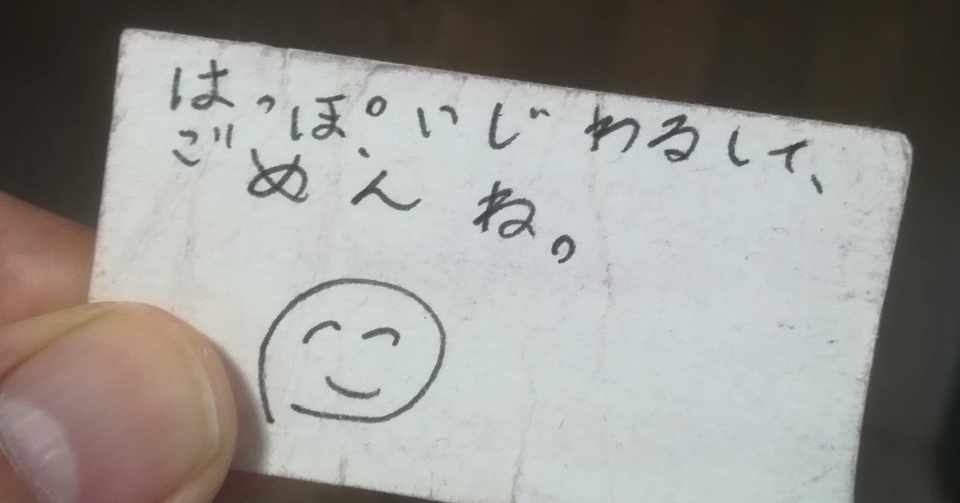 はっぽいじわるして、
ごめんね。